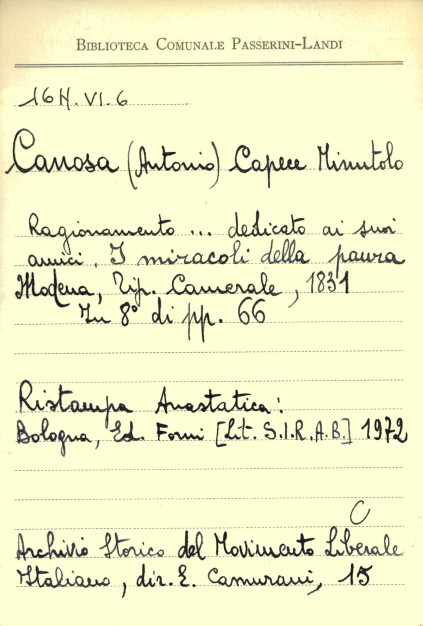 BIBLIOTECA COMUNALE PASSERINI-LANDI
16H.VI.6
Canosa (Antonio) Capece Minutolo
Ragionamento ... dedicato ai suoi
amici. I miracoli della paura
Modena, Tip. Camerale, 1831
In 8° di pp. 66
Ristampa Anastatica:
Bologna, Ed. Forni [Lit. S.I.R.A.B.] 1972
C
Archivio Storico del Movimento Liberale
Italiano, dir. E. Camurani, 15